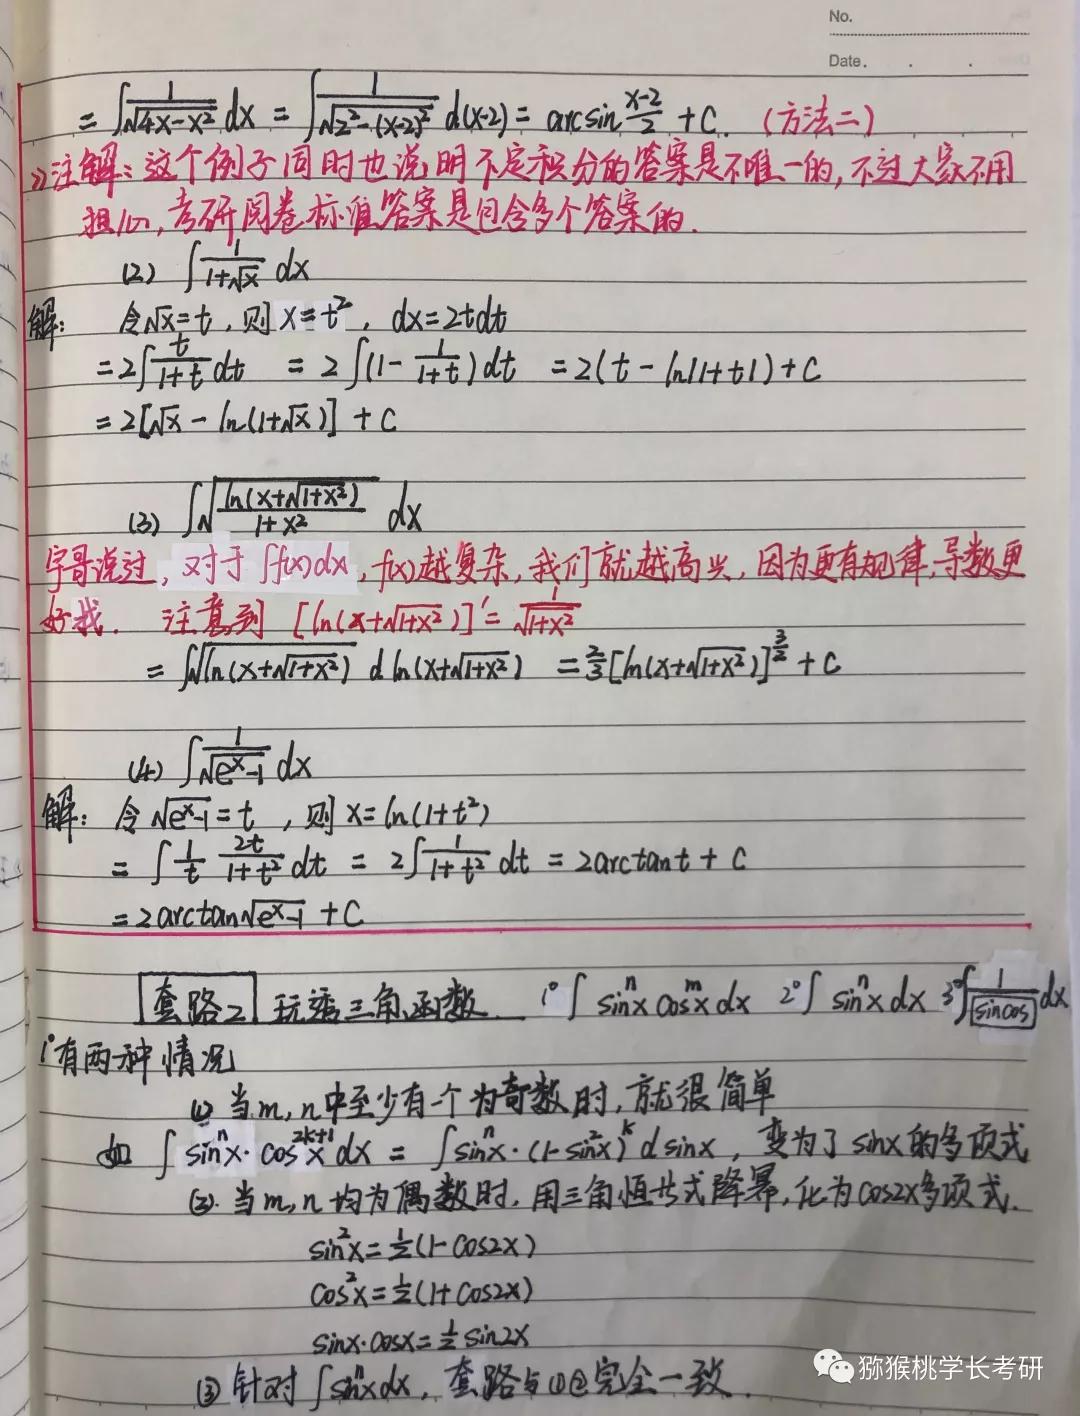 No.
Date. . .
= ∫ 1/√(4x-x²) dx = ∫ 1/√(2²-(x-2)²) d(x-2) = arcsin (x-2)/2 + C. (方法二)
注解: 这个例子同时也说明不定积分的答案是不唯一的, 不过大家不用
担心, 考研阅卷标准答案是包含多个答案的.
(2) ∫ 1/(1+√x) dx
解: 令√x = t, 则 x = t², dx = 2tdt
= 2∫ t/(1+t) dt = 2∫(1 - 1/(1+t)) dt = 2(t - ln|1+t|) + C
= 2[√x - ln(1+√x)] + C
(3) ∫√(ln(x+√(1+x²))/(1+x²)) dx
宇哥说过, 对于∫f(x)dx, f(x)越复杂, 我们就越高兴, 因为更有规律, 导数更
好找. 注意到 [ln(x+√(1+x²))]' = 1/√(1+x²)
= ∫√(ln(x+√(1+x²))) d ln(x+√(1+x²)) = 2/3 [ln(x+√(1+x²))]^(3/2) + C
(4) ∫ 1/√(eˣ-1) dx
解: 令√(eˣ-1) = t, 则 x = ln(1+t²)
= ∫ 1/t · 2t/(1+t²) dt = 2∫ 1/(1+t²) dt = 2arctant + C
= 2arctan√(eˣ-1) + C
套路2 玩透三角函数. 1° ∫ sinⁿx cosᵐx dx 2° ∫ sinⁿx dx 3° ∫ 1/(sincos) dx
1° 有两种情况
(1) 当m, n中至少有一个为奇数时, 就很简单
如 ∫ sinⁿx·cos²ᵏ⁺¹x dx = ∫ sinⁿx·(1-sin²x)ᵏ d sinx, 变为了sinx的多项式
(2). 当m, n均为偶数时, 用三角恒等式降幂, 化为cos2x多项式.
sin²x = ½(1-cos2x)
cos²x = ½(1+cos2x)
sinx·cosx = ½sin2x
③ 针对∫sinⁿxdx, 套路与①②完全一致.
猕猴桃学长考研